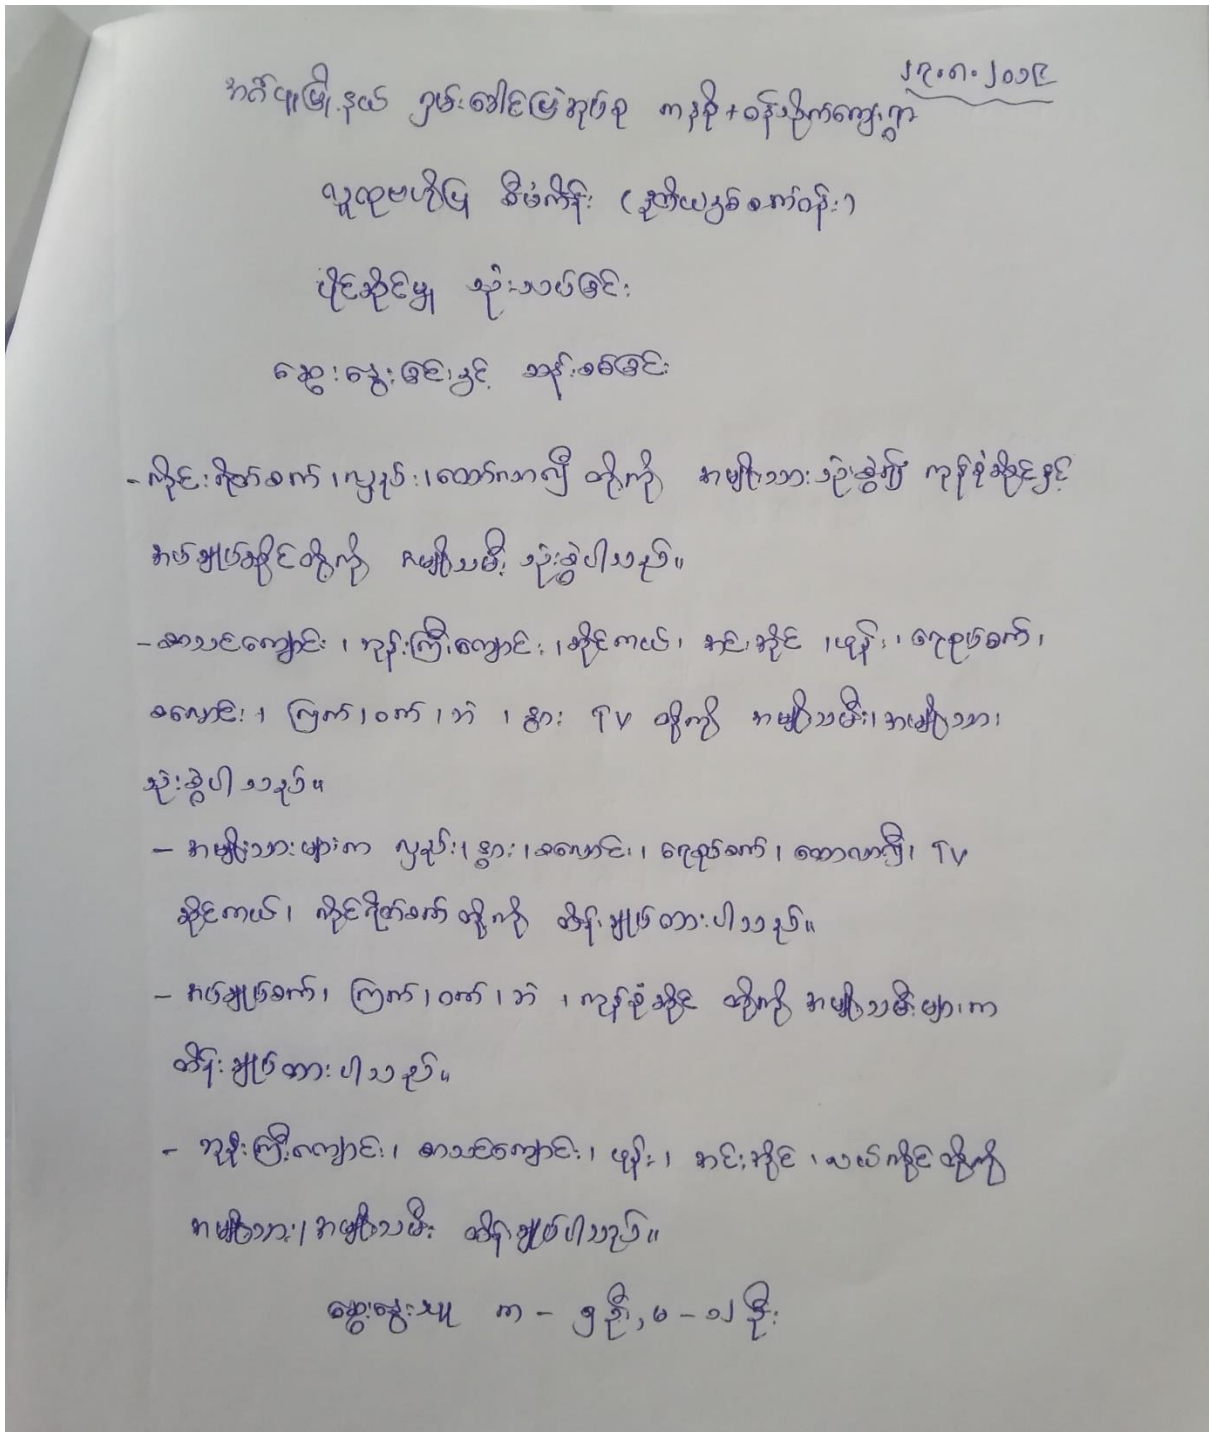 ၂၇.၈.၂၀၁၉
အင်္ဂပူမြို့နယ် ၇ှမ်းခေါင်မြဲအုပ်စု ကနစို+ဝန်သိုက်ကျေးရွာ
လူထုဗဟိုပြု စီမံကိန်း (ဒုတိယနှစ်စက်ဝန်း)
ပိုင်ဆိုင်မှု သုံးသပ်ခြင်း
ဆွေးနွေးခြင်းနှင့် သန်းစစ်ခြင်း
- ကိုင်းရိတ်စက်၊ လှည်း၊ ထော်လာလီ တို့ကို အမျိုးသားသုံးစွဲ၍ ကုန်စုံဆိုင်နှင့်
အပ်ချုပ်ဆိုင်တို့ကို အမျိုးသမီး သုံးစွဲပါသည်။
- စာသင်ကျောင်း၊ ဘုန်းကြီးကျောင်း၊ ဆိုင်ကယ်၊ အင်းအိုင်၊ ဖုန်း၊ ရေစုပ်စက်၊
စလောင်း၊ ကြက်၊ ဝက်၊ ဘဲ၊ နွား TV တို့ကို အမျိုးသမီး၊ အမျိုးသား
သုံးစွဲပါသည်။
- အမျိုးသားများက လှည်း၊ နွား၊ စလောင်း၊ ရေစုပ်စက်၊ ထောလာလီ၊ TV
ဆိုင်ကယ်၊ ကိုင်ရိတ်စက် တို့ကို ထိန်းချုပ်ထားပါသည်။
- အပ်ချုပ်စက်၊ ကြက်၊ ဝက်၊ ဘဲ၊ ကုန်စုံဆိုင် တို့ကို အမျိုးသမီးများက
ထိန်းချုပ်ထားပါသည်။
- ဘုန်းကြီးကျောင်း၊ စာသင်ကျောင်း၊ ဖုန်း၊ အင်းအိုင်၊ လယ်ကိုင်တို့ကို
အမျိုးသား၊ အမျိုးသမီး ထိန်းချုပ်ပါသည်။
ဆွေးနွေးသူ က - ၅ ဦး, မ - ၁၂ ဦး